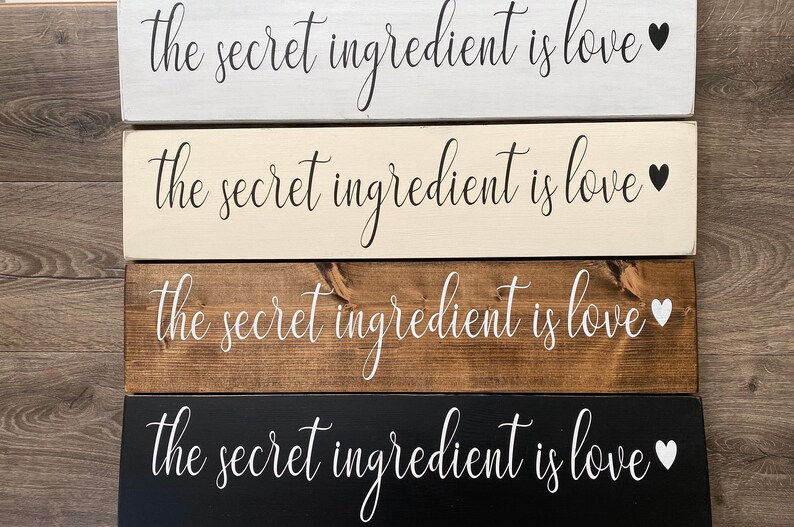 the secret ingredient is love
the secret ingredient is love
the secret ingredient is love
the secret ingredient is love